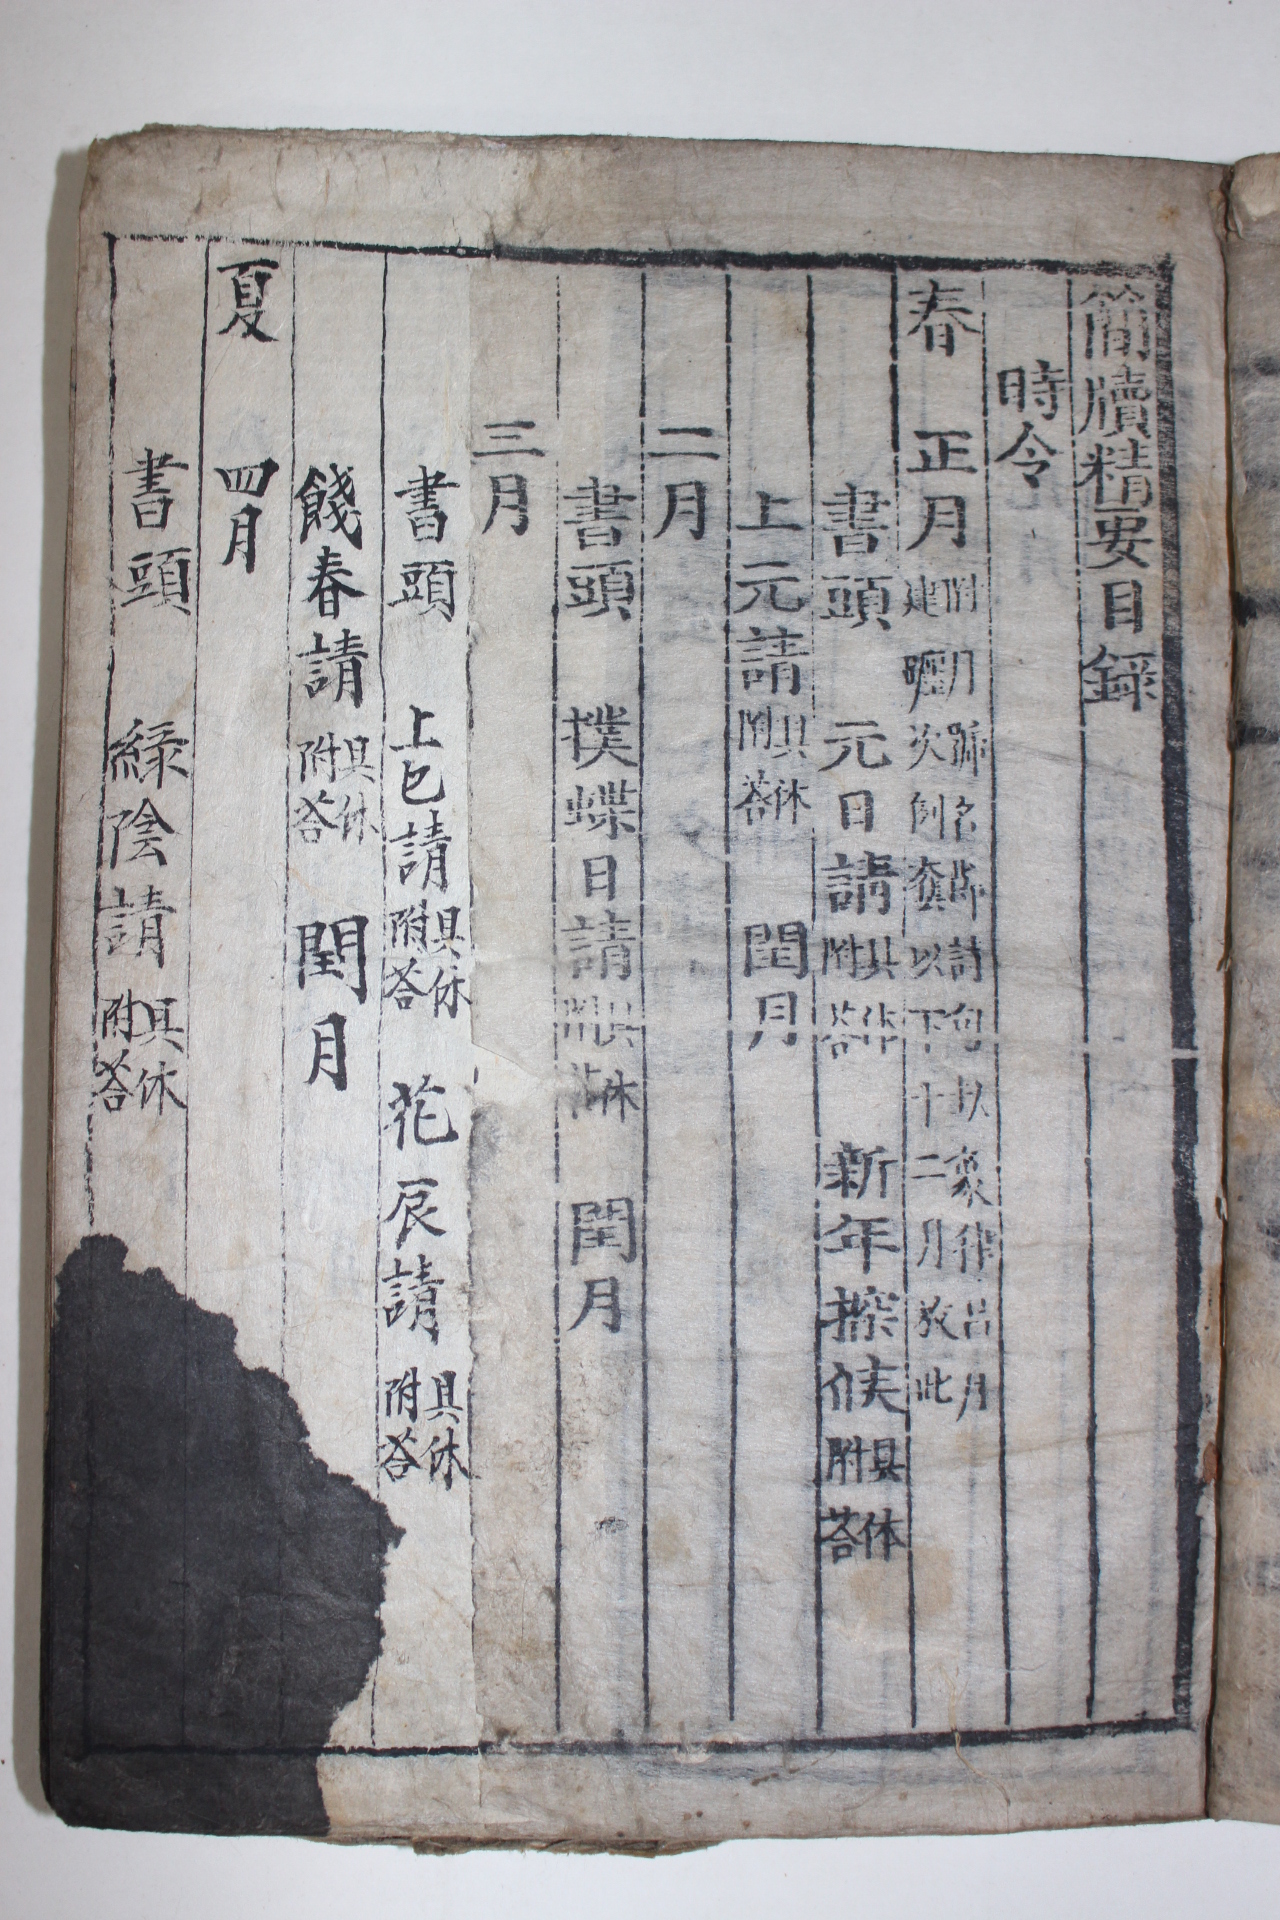 簡牘精要目録
時令
春 正月 附月號名時詩句以象律呂月
建曆次例套以下十二月放此
書頭 元日請 具体附答 新年探候 具体附答
上元請 具休附答 閏月
二月
書頭 撲蝶日請 具休附答 閏月
三月
書頭 上巳請 具休附答 花辰請 具休附答
餞春請 具休附答 閏月
夏 四月
書頭 綠陰請 具休附答